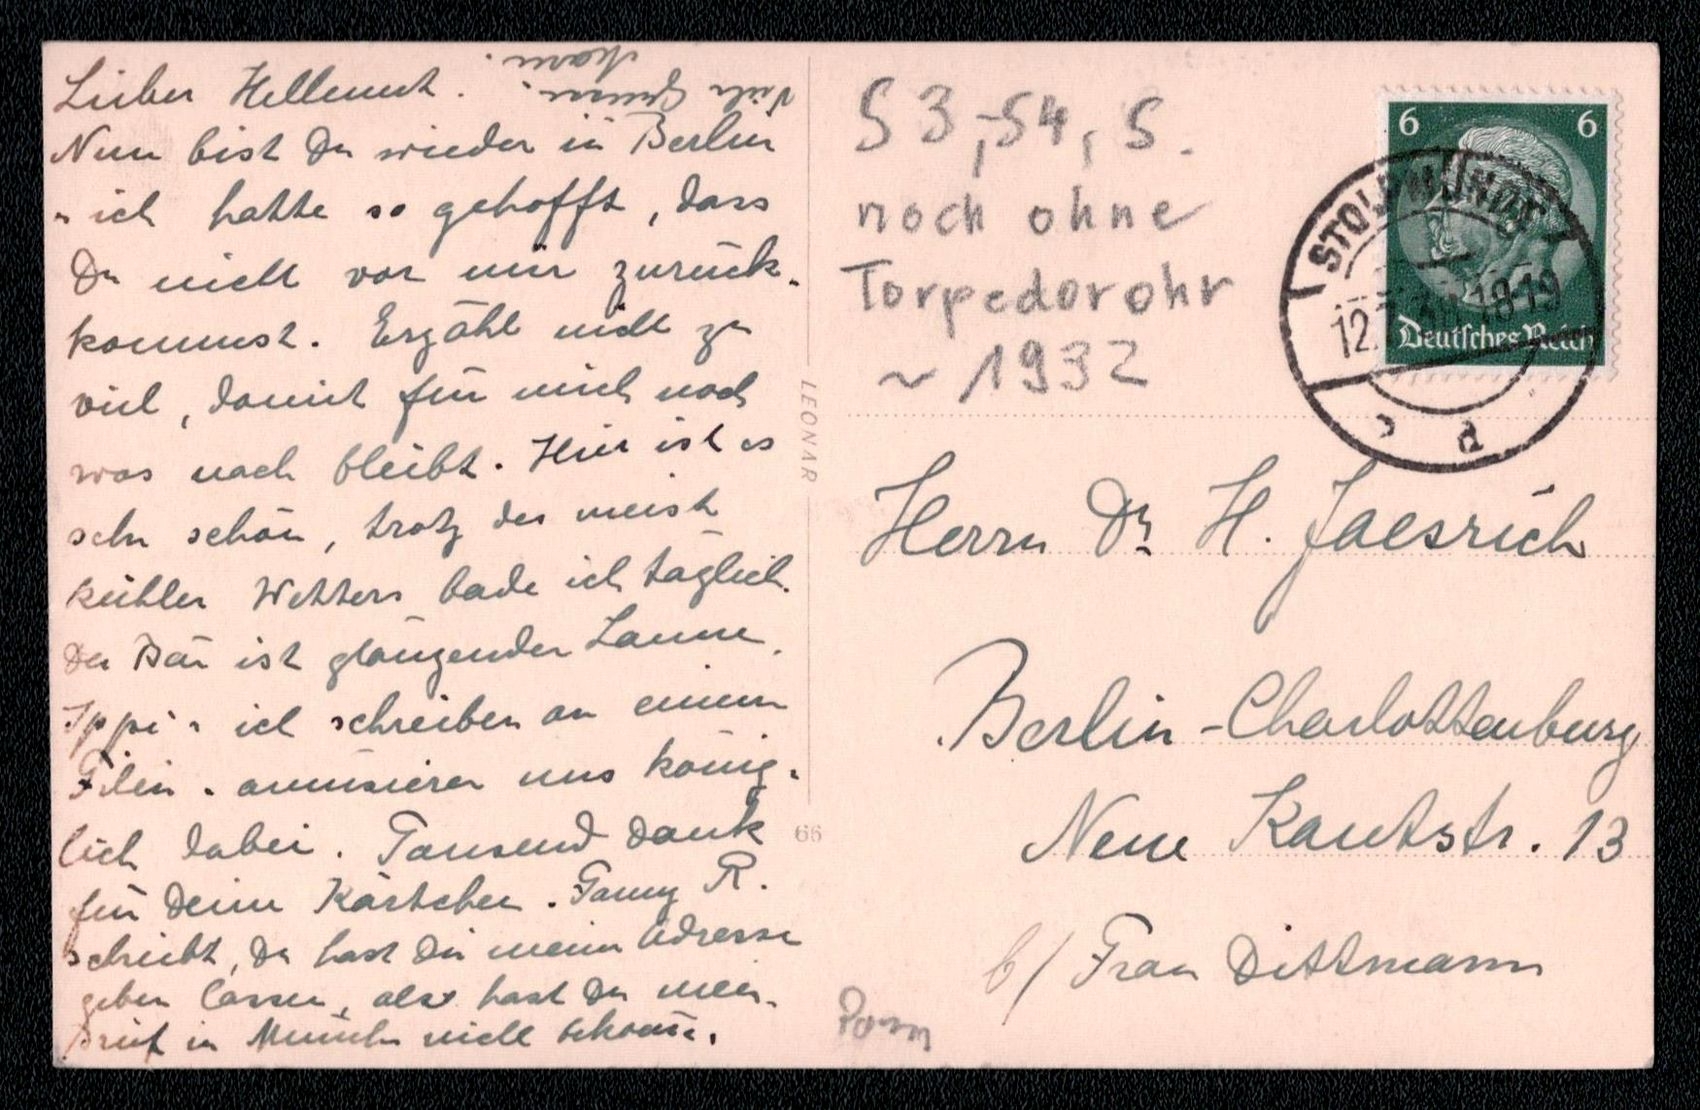 Lieber Hellmut.
Nun bist Du wieder in Berlin
u. ich hatte so gehofft, dass
Du nicht vor mir zurück-
kommst. Erzähl nicht zu
viel, damit für mich noch
was nach bleibt. Hier ist es
sehr schön, trotz des meist
kühlen Wetters bade ich täglich.
Der Bär ist glänzender Laune.
Ippi u ich schreiben an einem
Film u. amüsieren uns könig-
lich dabei. Tausend Dank
für Deine Kärtchen. Fanny R.
schreibt, Du hast Dir meine Adresse
geben lassen, also hast Du mein-
Brief in München nicht bekomm.
Viele Grüsse
LEONAR
66
S 3,-S4, S.
noch ohne
Torpedorohr
~ 1932
6 6
Deutsches Reich
STOLPMÜNDE
12. 18-19
d
Herrn Dr. H. Jaesrich
Berlin-Charlottenburg
Neue Kantstr. 13
b/ Frau Dittmann
Pom